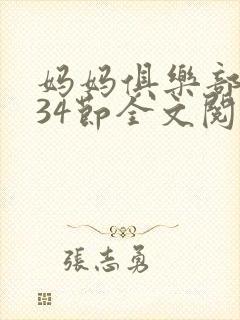 妈妈俱樂部
34節全文閱
張志勇